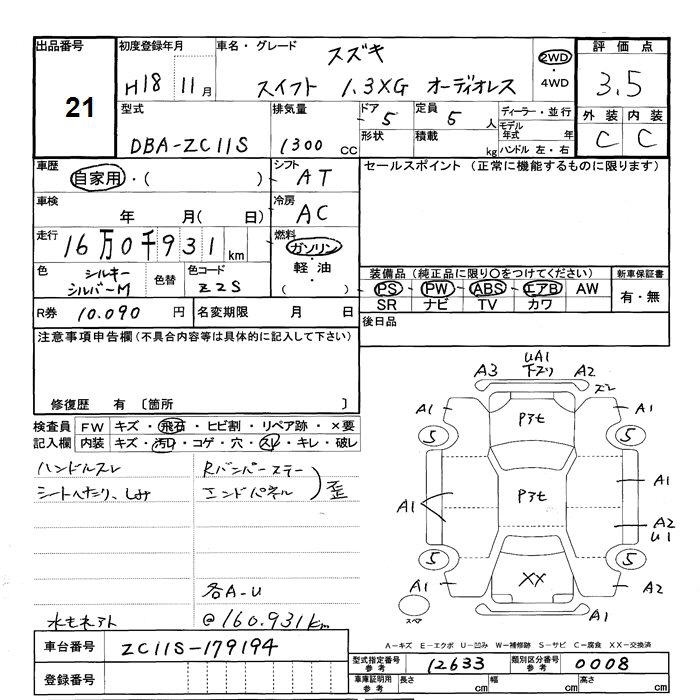 出品番号
21
初度登録年月
H18 11月
車名・グレード
スズキ
スイフト 1.3XG オーディオレス
2WD
・
4WD
評価点
3.5
外装 内装
C C
型式
DBA-ZC11S
排気量
1300 cc
ドア
5
形状
定員
5 人
積載
kg
ディーラー・並行
モデル年式 年
ハンドル 左・右
車歴
自家用・( )
シフト
AT
車検
年 月( 日)
冷房
AC
走行
16万0千931km
燃料
ガソリン
・
軽油
( )
色
シルキー
シルバーM
色替
色コード
Z2S
R券 10.090 円
名変期限 月 日
セールスポイント (正常に機能するものに限ります)
装備品 (純正品に限り○をつけてください)
PS PW ABS エアB AW
SR ナビ TV カワ
新車保証書
有・無
後日品
注意事項申告欄 (不具合内容等は具体的に記入して下さい)
修復歴 有 〔箇所 〕
検査員記入欄
FW キズ・飛石・ヒビ割・リペア跡・×要
内装 キズ・汚れ・コゲ・穴・スレ・キレ・破レ
ハンドルスレ
シートへたり、しみ
Rバンパーステー
エンドパネル
歪
各A-U
水もネアト
@160.931km
UA1
A3 下ズリ A2
ズレ
A1 A1
Pｽﾓ
5 5
A1
Pｽﾓ
A1
A2
U1
5 5
XX
A1 A2
スペア
A1
A-キズ E-エクボ U-凹み W-補修跡 S-サビ C-腐食 XX-交換済
車台番号 ZC11S-179194
登録番号
型式指定番号 参考 12633
類別区分番号 参考 0008
車庫証明用 参考 長さ cm 幅 cm 高さ cm